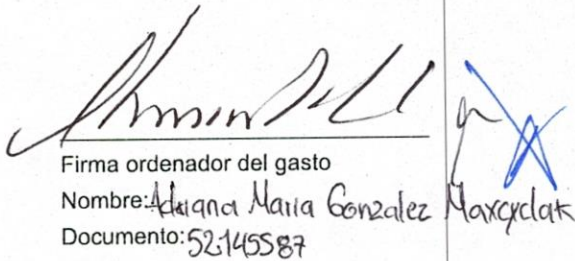 Firma ordenador del gasto
Nombre: Adriana Maria Gonzalez
Documento: 52.145587